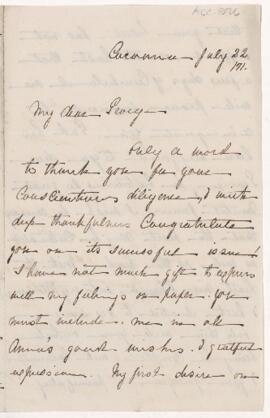 Cacouna July 22
/91.
My dear George
Only a word
to thank you for your
conscientious diligence, & with
deep thankfulness congratulate
you on its successful issue!
I have not much gift to express
well my feelings on paper. You
must include me in all
Anna's good wishes & grateful
expression. My first desire on